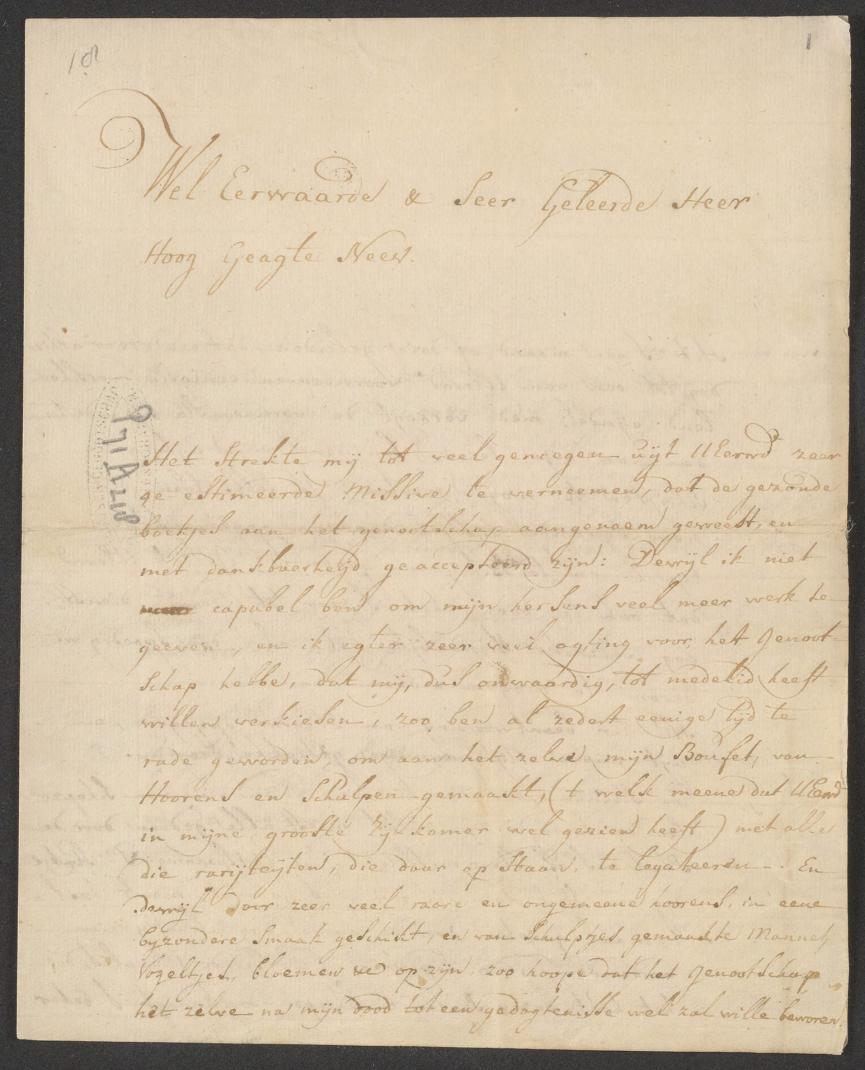 18
1
Wel Eerwaarde & Seer Geleerde Heer
Hoog Geagte Neev.
Het strekte mij tot veel genoegen uijt UEerwd zeer
ge estimeerde Missive te verneemen, dat de gezonde
boekjes aan het genootschap aangenaem geweest, en
met dankbaerheijd geaccepteerd zijn: Dewijl ik niet
capabel ben, om mijn hersens veel meer werk te
geeven, en ik egter zeer veel agting voor het Genoot
schap hebbe, dat mij, dus onwaardig, tot medelid heeft
willen verkiesen, zoo ben al zedert eenige tijd te
rade geworden, om aan het zelve mijn Boufet, van
Hoorens en Schulpen gemaakt, (t welk meene dat UEerwd
in mijne grootste Zijkamer wel gezien heeft) met alle
die rarijteijten, die daar op staan, te legateeren. En
dewijl daar zeer veel raare en ongemeene hoorens, in eene
byzondere smaak geschikt, en van schulpjes gemaakte Mannetjes
Vogeltjes, bloemen &c op zijn, zoo hoope dat het Genootschap
het zelve na mijn dood tot een gedagtenisse wel zal wille bewaren.